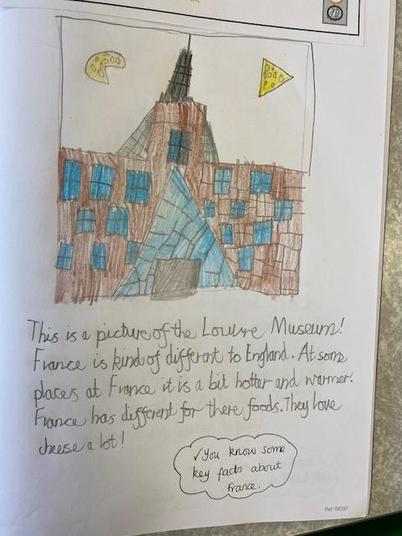 This is a picture of the Louvre Museum!
France is kind of different to England. At some
places at France it is a bit hotter and warmer.
France has different for there foods. They love
cheese a lot!
✓ You know some
key facts about
France.